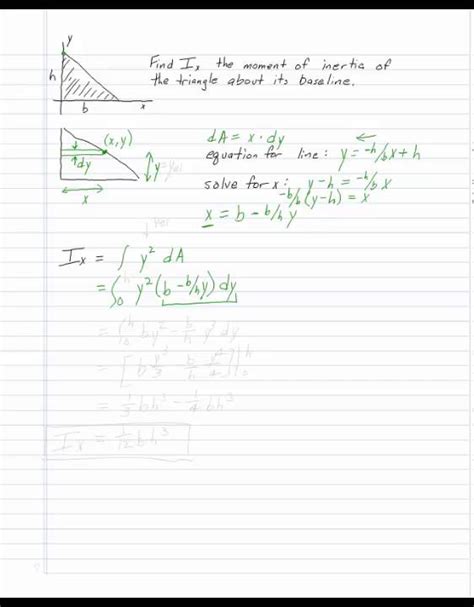 y
Find Ix the moment of inertia of
the triangle about its baseline.
h
b
x
(x,y)
dy
y
x
dA = x · dy
equation for line: y = -h/b x + h
solve for x: y-h = -h/b x
-b/h (y-h) = x
x = b - b/h y
Ix = ∫ y² dA
= ∫₀ʰ y² (b - b/h y) dy
= ∫₀ʰ by² - b/h y³ dy
= [b y³/3 - b/h y⁴/4]|₀ʰ
= 1/3 bh³ - 1/4 bh³
Ix = 1/12 bh³